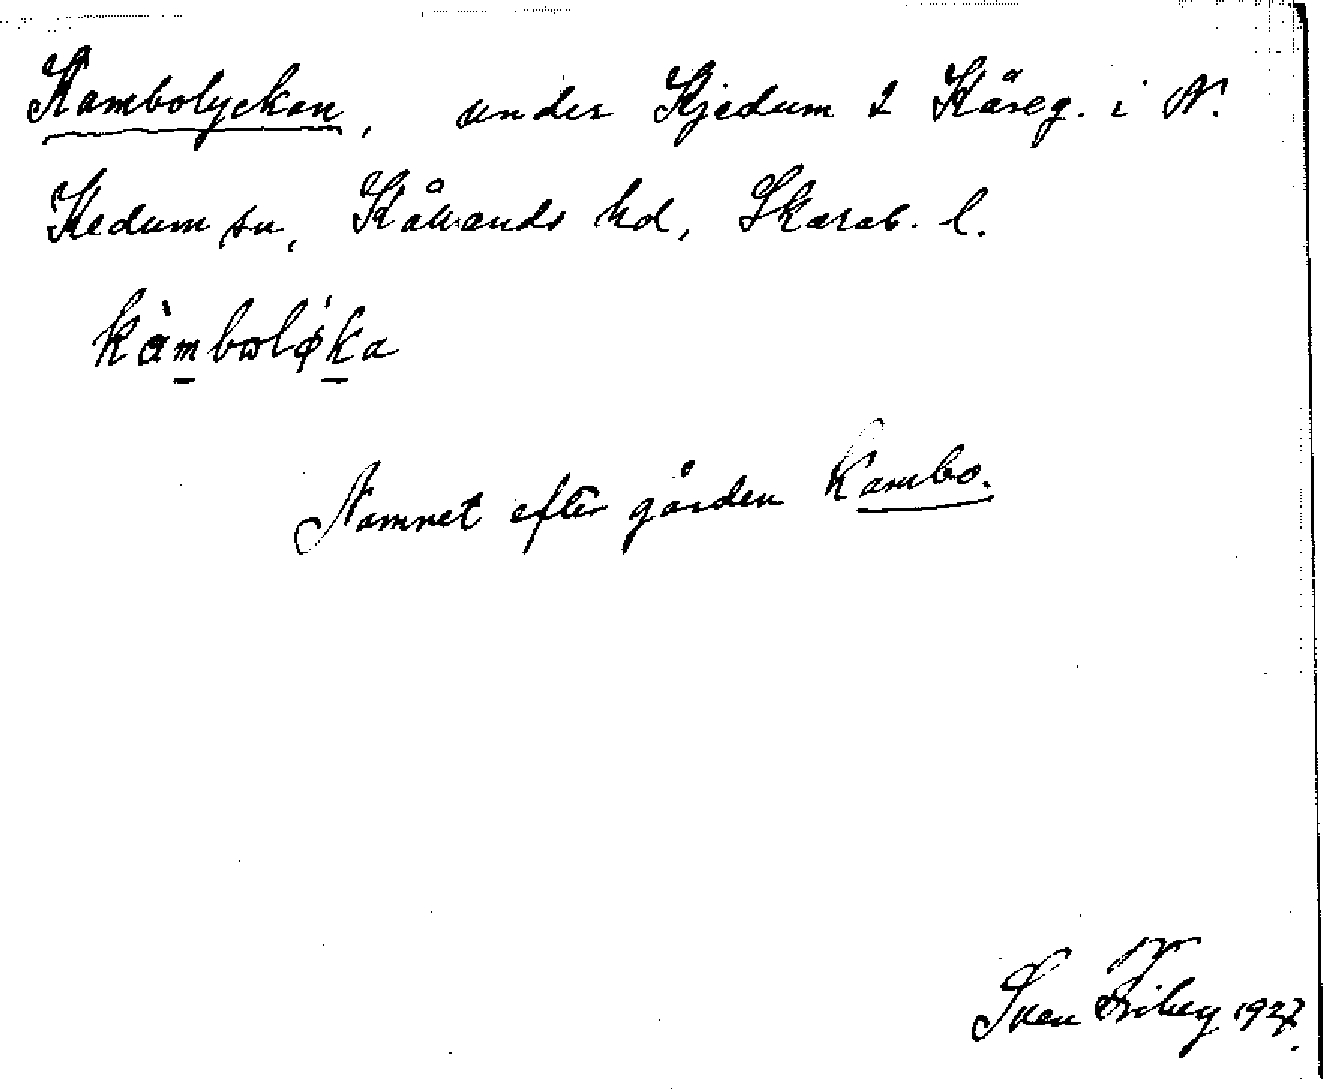 Kambolyckan, under Kjedum 2 Käreg. i N.
Kedum sn, Kållands hd, Skarab. l.
kàmbωlø̀ka
Namnet efter gården Kambo.
Sven Friberg 1927.